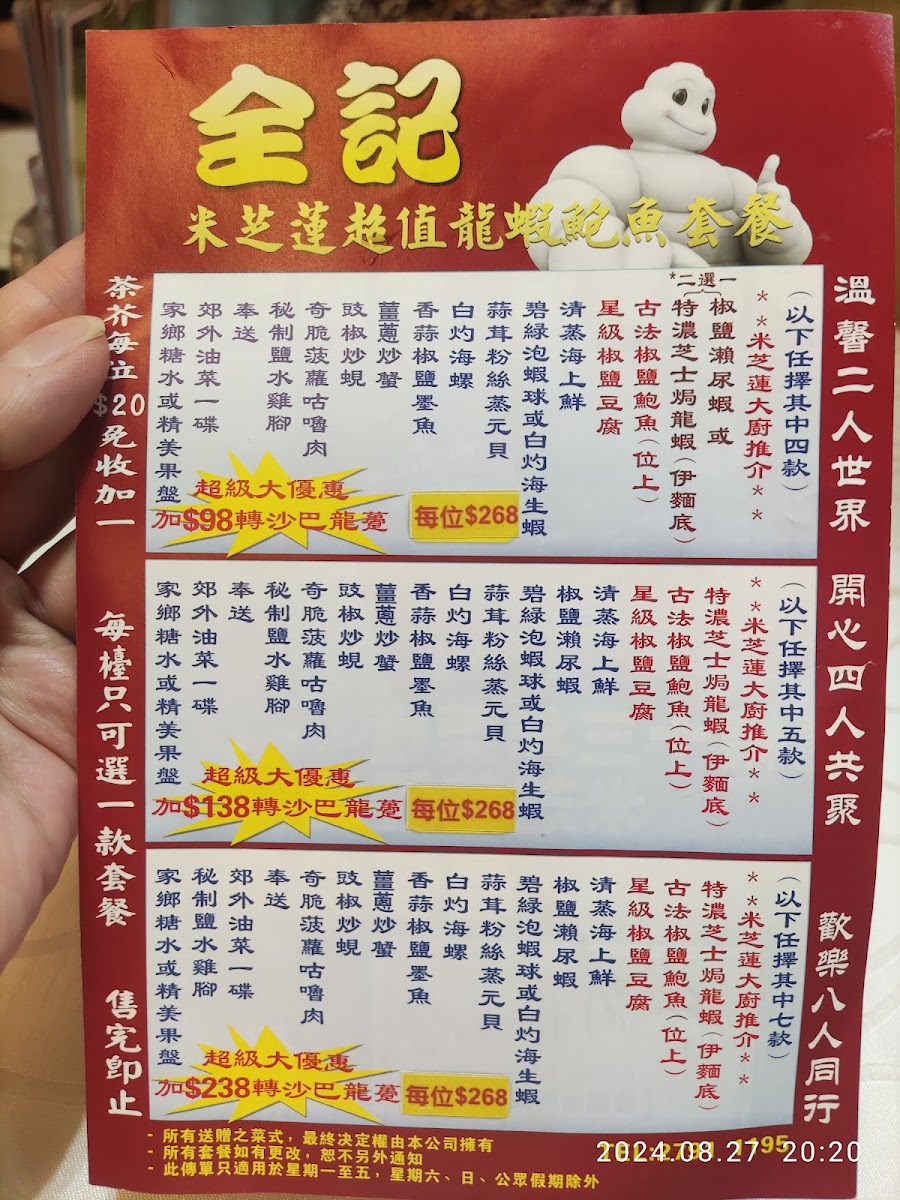 全記
米芝蓮超值龍蝦鮑魚套餐
溫馨二人世界
(以下任擇其中四款)
**米芝蓮大廚推介**
*二選一
椒鹽瀨尿蝦 或
特濃芝士焗龍蝦(伊麵底)
古法椒鹽鮑魚(位上)
星級椒鹽豆腐
清蒸海上鮮
碧綠泡蝦球或白灼海生蝦
蒜茸粉絲蒸元貝
白灼海螺
香蒜椒鹽墨魚
薑蔥炒蟹
豉椒炒蜆
奇脆菠蘿咕嚕肉
秘制鹽水雞腳
奉送
郊外油菜一碟
家鄉糖水或精美果盤
超級大優惠
加$98轉沙巴龍躉
每位$268
開心四人共聚
(以下任擇其中五款)
**米芝蓮大廚推介**
特濃芝士焗龍蝦(伊麵底)
古法椒鹽鮑魚(位上)
星級椒鹽豆腐
清蒸海上鮮
椒鹽瀨尿蝦
碧綠泡蝦球或白灼海生蝦
蒜茸粉絲蒸元貝
白灼海螺
香蒜椒鹽墨魚
薑蔥炒蟹
豉椒炒蜆
奇脆菠蘿咕嚕肉
秘制鹽水雞腳
奉送
郊外油菜一碟
家鄉糖水或精美果盤
超級大優惠
加$138轉沙巴龍躉
每位$268
歡樂八人同行
(以下任擇其中七款)
**米芝蓮大廚推介**
特濃芝士焗龍蝦(伊麵底)
古法椒鹽鮑魚(位上)
星級椒鹽豆腐
清蒸海上鮮
椒鹽瀨尿蝦
碧綠泡蝦球或白灼海生蝦
蒜茸粉絲蒸元貝
白灼海螺
香蒜椒鹽墨魚
薑蔥炒蟹
豉椒炒蜆
奇脆菠蘿咕嚕肉
奉送
郊外油菜一碟
秘制鹽水雞腳
家鄉糖水或精美果盤
超級大優惠
加$238轉沙巴龍躉
每位$268
茶芥每位$20免收加一
每檯只可選一款套餐
售完即止
- 所有送贈之菜式，最終決定權由本公司擁有
- 所有套餐如有更改，恕不另外通知
- 此傳單只適用於星期一至五，星期六、日、公眾假期除外
2024.08.27 20:20